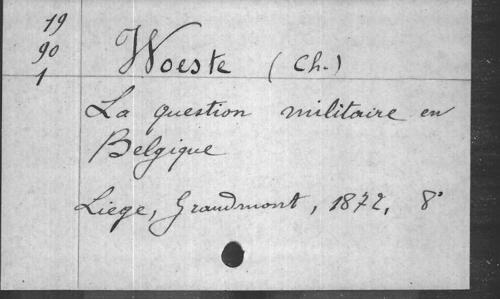 19
90
1
Woeste (Ch.)
La question militaire en
Belgique
Liege, Grandmont, 1872, 8°